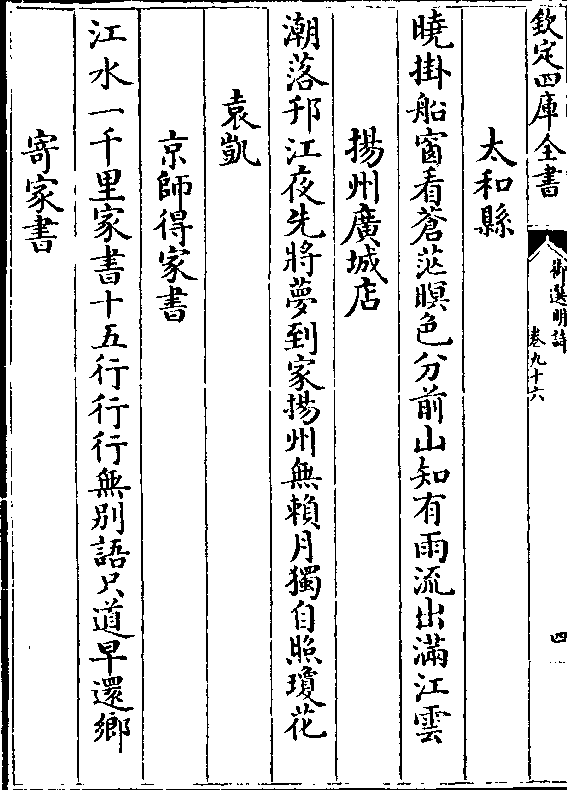 欽定四庫全書
御選明詩
卷九十六
四
太和縣
曉掛船窗看蒼茫暝色分前山知有雨流出滿江雲
揚州廣城店
潮落邗江夜先將夢到家揚州無賴月獨自照瓊花
袁凱
京師得家書
江水一千里家書十五行行行無别語只道早還鄉
寄家書